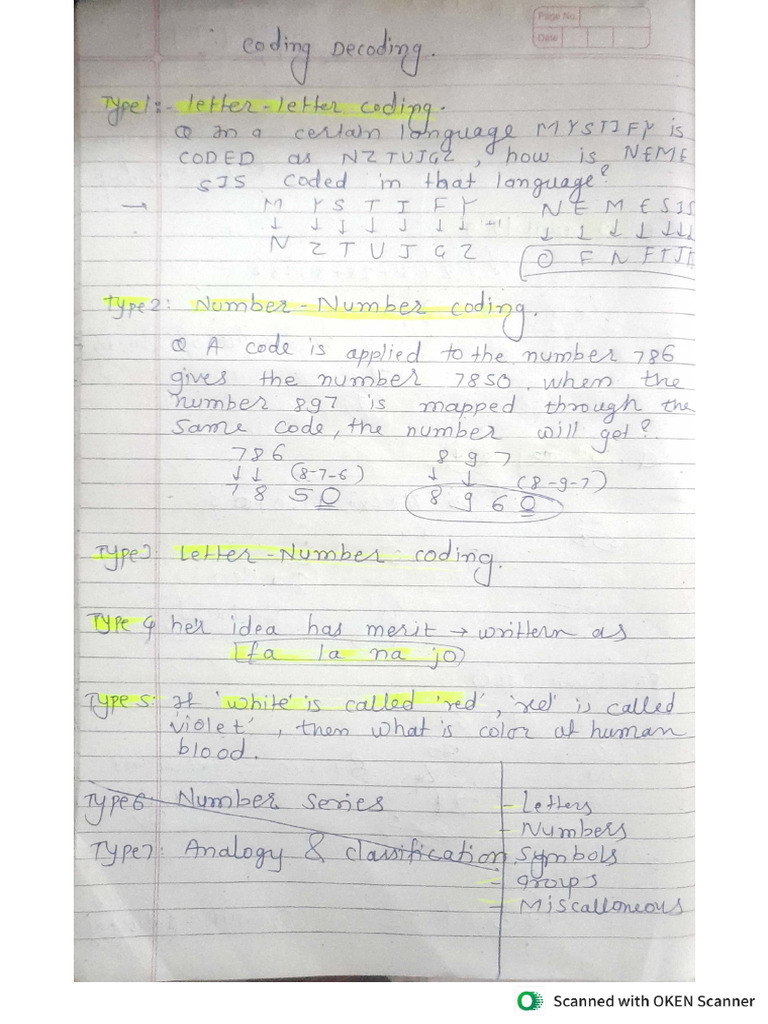 Page No.
Date
Coding Decoding.
Type1:- letter-letter coding.
Q In a certain language MYSTIFY is
CODED as NZTUJGZ, how is NEME
SIS coded in that language?
→ M Y S T I F Y N E M E S I S
↓ ↓ ↓ ↓ ↓ ↓ ↓ +1 ↓ ↓ ↓ ↓ ↓ ↓ ↓
N Z T U J G Z O F N F T J
Type 2: Number-Number coding.
Q A code is applied to the number 786
gives the number 7850. when the
number 897 is mapped through the
same code, the number will get?
786 8 9 7
↓ ↓ (8-7-6) ↓ ↓ (8-9-7)
7 8 5 0 8 9 6 0
Type3 Letter-Number coding.
Type 4 her idea has merit → writtern as
fa la na jo
Type 5: If 'white' is called 'red', 'red' is called
violet', then what is color of human
blood.
Type6 Number Series - Letters
- Numbers
Type7: Analogy & classification Symbols
- groups
- Miscalloneous
Scanned with OKEN Scanner